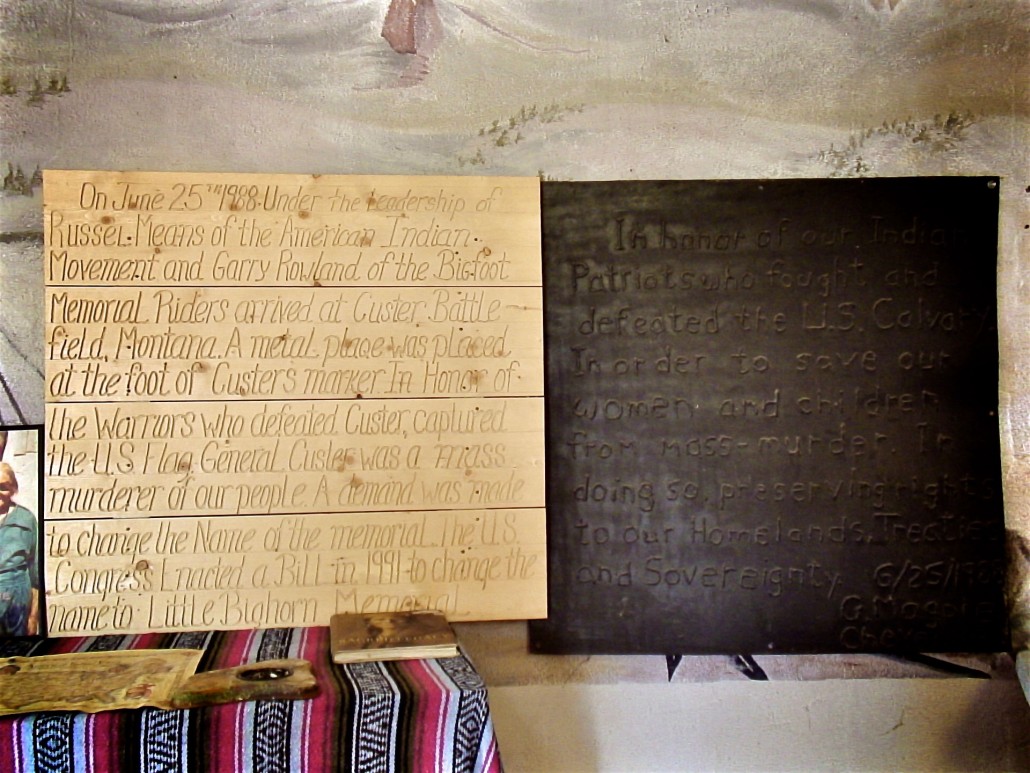 On June 25TH 1988 Under the Leadership of
Russel Means of the American Indian
Movement and Garry Rowland of the Bigfoot
Memorial Riders arrived at Custer Battle
field, Montana. A metal plaqe was placed
at the foot of Custers marker In Honor of
the Warriors who defeated Custer, captured
the U.S. Flag. General Custer was a mass
murderer of our people. A demand was made
to change the Name of the memorial. The U.S.
Congress Enacted a Bill in 1991 to change the
name to Little Bighorn Memorial
In honor of our Indian
Patriots who fought and
defeated the U.S. Calvary.
In order to save our
women and children
from mass-murder. In
doing so preserving rights
to our Homelands, Treaties
and Sovereignty. 6/25/19
G. Mag